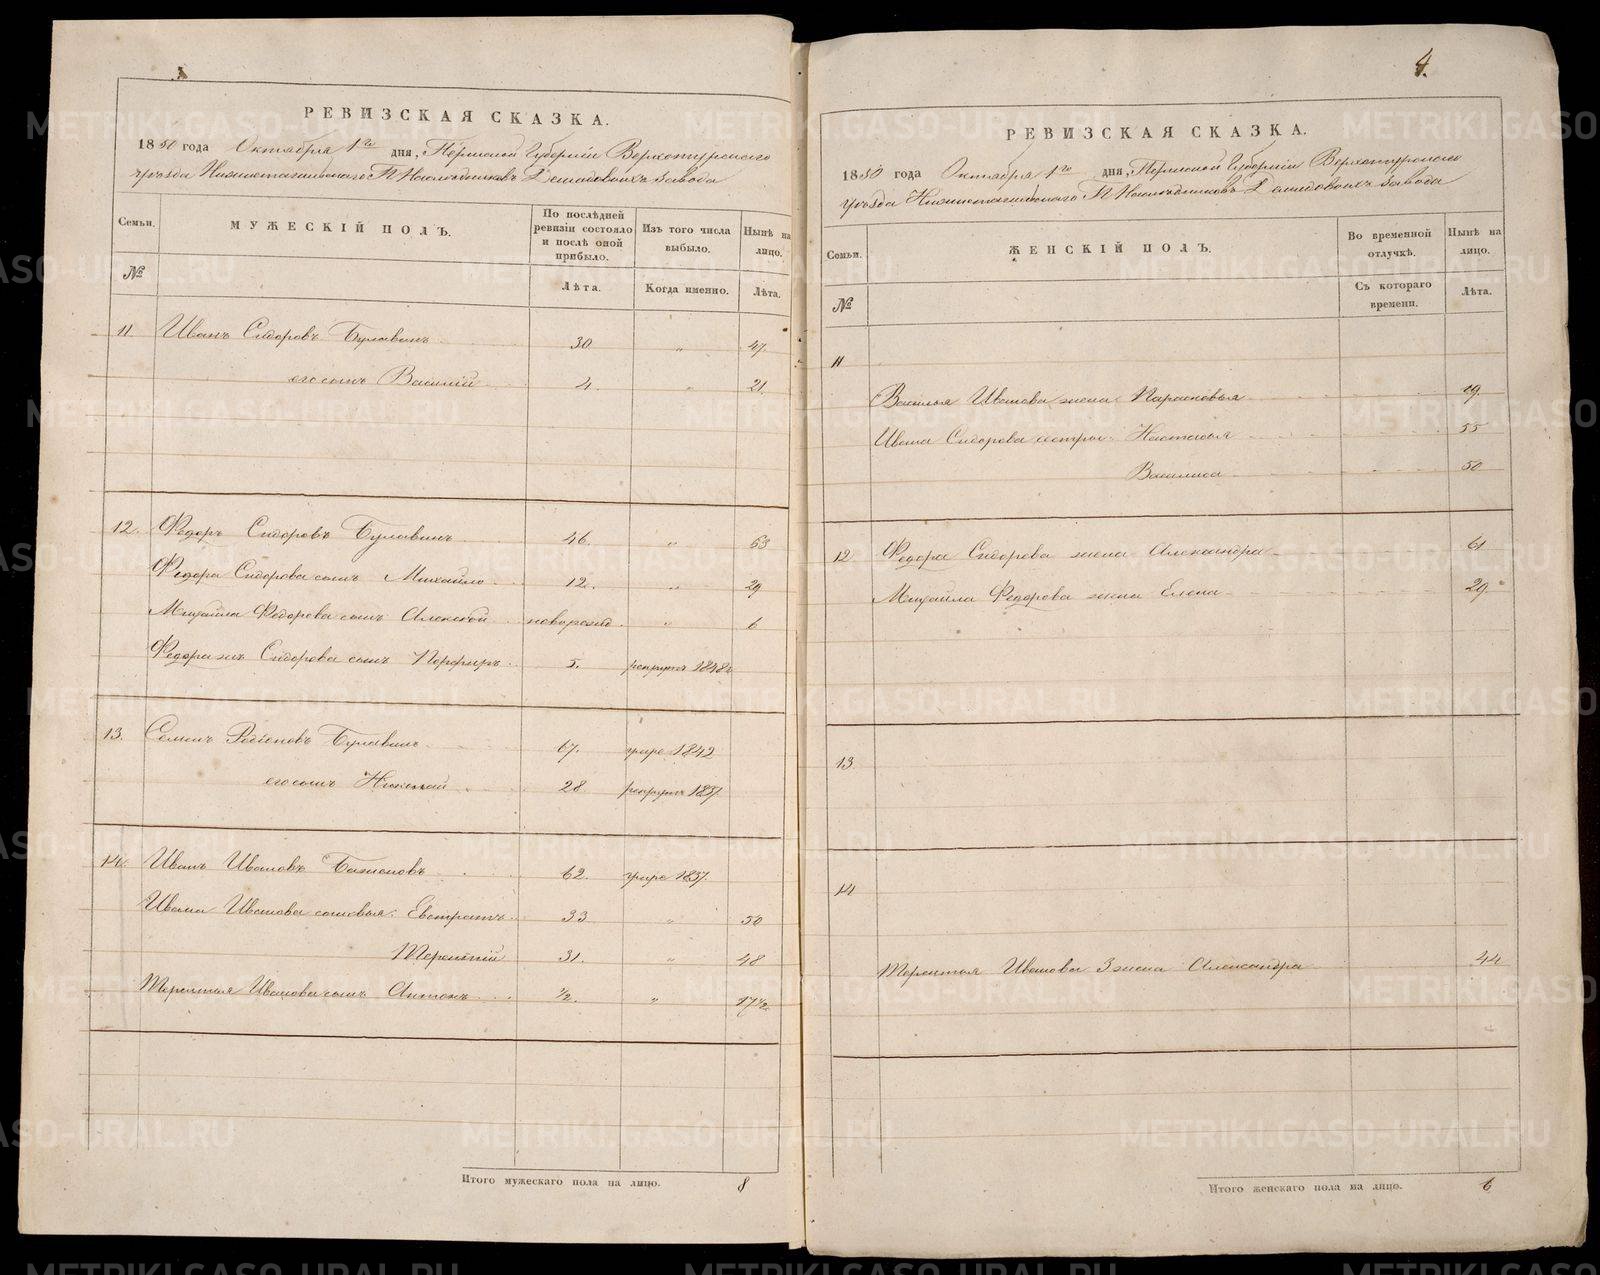 РЕВИЗСКАЯ СКАЗКА.
1850 года Октября 1го дня, Пермской Губернiи Верхотурскаго
уѣзда Нижнетагильскаго Г.г. Наслѣдниковъ Демидовыхъ завода
Семьи.
№
МУЖЕСКІЙ ПОЛЪ.
По послѣдней ревизіи состояло и послѣ оной прибыло.
Лѣта.
Изъ того числа выбыло.
Когда именно.
Нынѣ на лицо.
Лѣта.
11. Иванъ Сидоровъ Булавинъ 30 " 47.
его сынъ Василiй 4. " 21.
12. Федоръ Сидоровъ Булавинъ 46. " 63
Федора Сидорова сынъ Михайло 12. " 29
Михайла Федорова сынъ Алексѣй новорожд. " 6
Федора жъ Сидорова сынъ Порфиръ 5. рекрутъ 1848
13. Семенъ Родiоновъ Булавинъ 67. умре 1842
его сынъ Николай 28 рекрутъ 1837.
14. Иванъ Ивановъ 62. умре 1837.
Ивана Иванова сыновья: Евстратъ 33 " 50
Терентiй 31. " 48
Терентья Иванова сынъ Антонъ 1/2. " 17 1/2
Итого мужескаго пола на лицо. 8
4.
РЕВИЗСКАЯ СКАЗКА.
1850 года Октября 1го дня, Пермской Губернiи Верхотурскаго
уѣзда Нижнетагильскаго Г.г. Наслѣдниковъ Демидовыхъ завода
Семьи.
№
ЖЕНСКІЙ ПОЛЪ.
Во временной отлучкѣ.
Съ котораго времени.
Нынѣ на лицо.
Лѣта.
11
Василья Иванова жена Парасковья 19.
Ивана Сидорова сестры: Настасья 55
Василиса 50
12. Федора Сидорова жена Александра 61
Михайла Федорова жена Елена 29.
13
14
Терентья Иванова 3 жена Александра 44
Итого женскаго пола на лицо. 6
METRIKI.GASO-URAL.RU